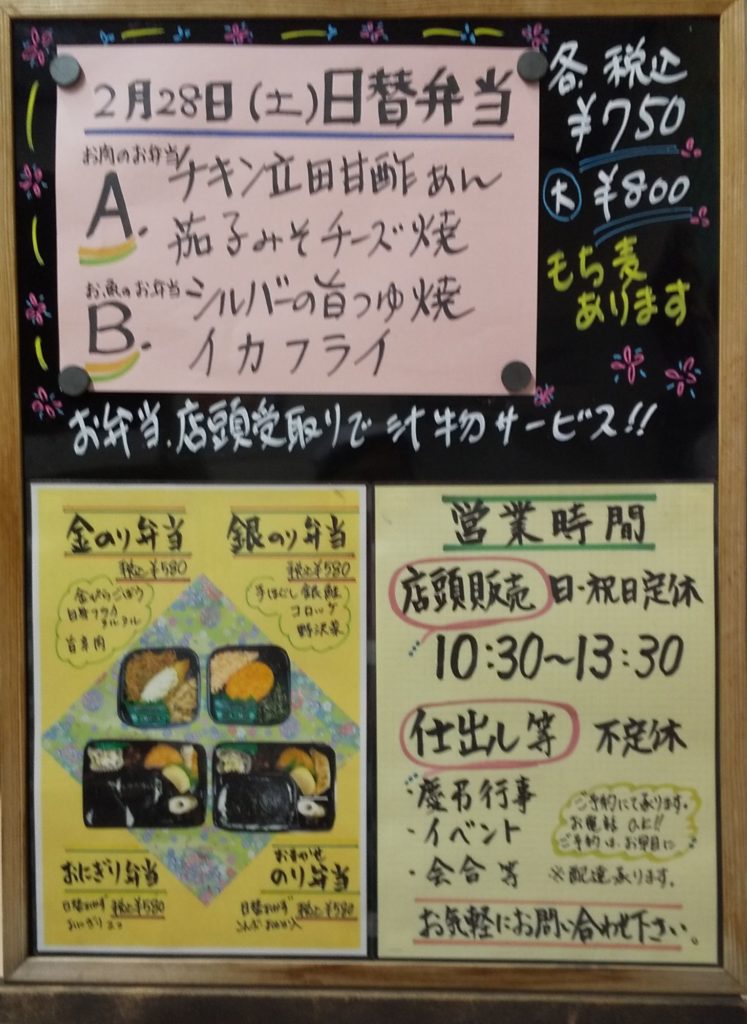 2月28日(土)日替弁当
お肉のお弁当
A.
チキン立田甘酢あん
茄子みそチーズ焼
お魚のお弁当
B.
シルバーの旨つゆ焼
イカフライ
各税込
¥750
大 ¥800
もち麦
あります
お弁当、店頭受取りで汁物サービス!!
金のり弁当
税込¥580
金ぴらごぼう
白身フライ
タルタル
旨辛肉
銀のり弁当
税込¥580
手ほぐし銀鮭
コロッケ
野沢菜
おにぎり弁当
日替おかず 税込¥580
おにぎり2コ
おまかせ
のり弁当
日替おかず 税込¥580
こんぶ・おかか入
営業時間
店頭販売 日・祝日定休
10:30~13:30
仕出し等 不定休
・慶弔行事
・イベント
・会合等
ご予約にて承ります。
お電話OK!!
ご予約は、お早目に
※配達承ります。
お気軽にお問い合わせ下さい。